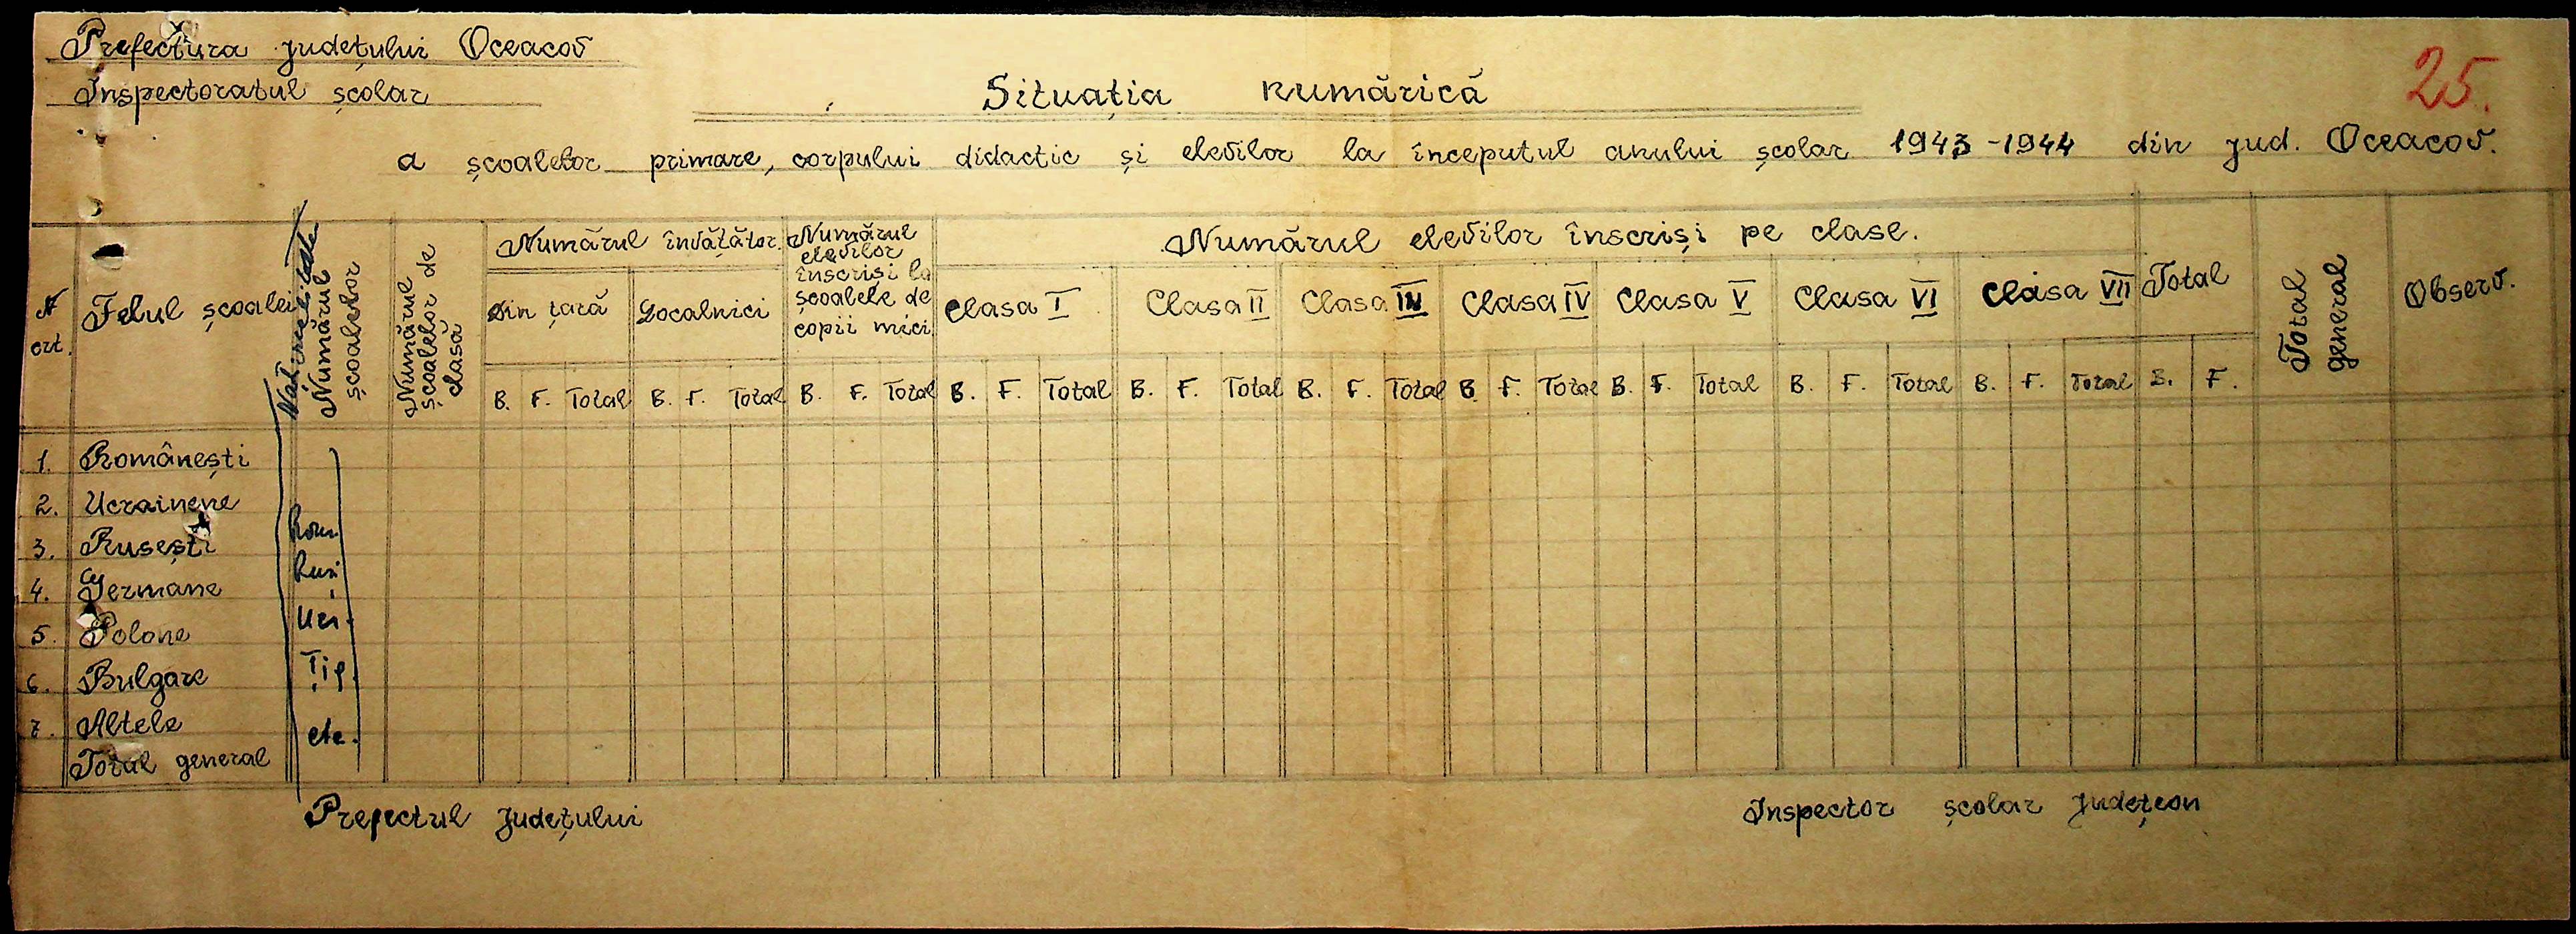 Prefectura județului Oceacov
Inspectoratul școlar
25.
Situația numărică
a școalelor primare, corpului didactic și elevilor la începutul anului școlar 1943-1944 din jud. Oceacov.
N crt.
Felul școalei
Numărul școalelor
Numărul școalelor de clasă
Numărul învățător.
din țară
Localnici
Numărul elevilor înscriși la școalele de copii mici
Numărul elevilor înscriși pe clase.
Clasa I
Clasa II
Clasa III
Clasa IV
Clasa V
Clasa VI
Clasa VII
Total
Total general
Observ.
B. F. Total B. F. Total B. F. Total B. F. Total B. F. Total B. F. Total B F. Total B. F. Total B. F. Total B. F. Total B. F.
1. Românești
2. Ucrainene
Rom.
3. Rusești
Rusi
4. Germane
Ucr.
5. Polone
Țig.
6. Bulgare
7. Altele
etc.
Total general
Prefectul județului
Inspector școlar județean